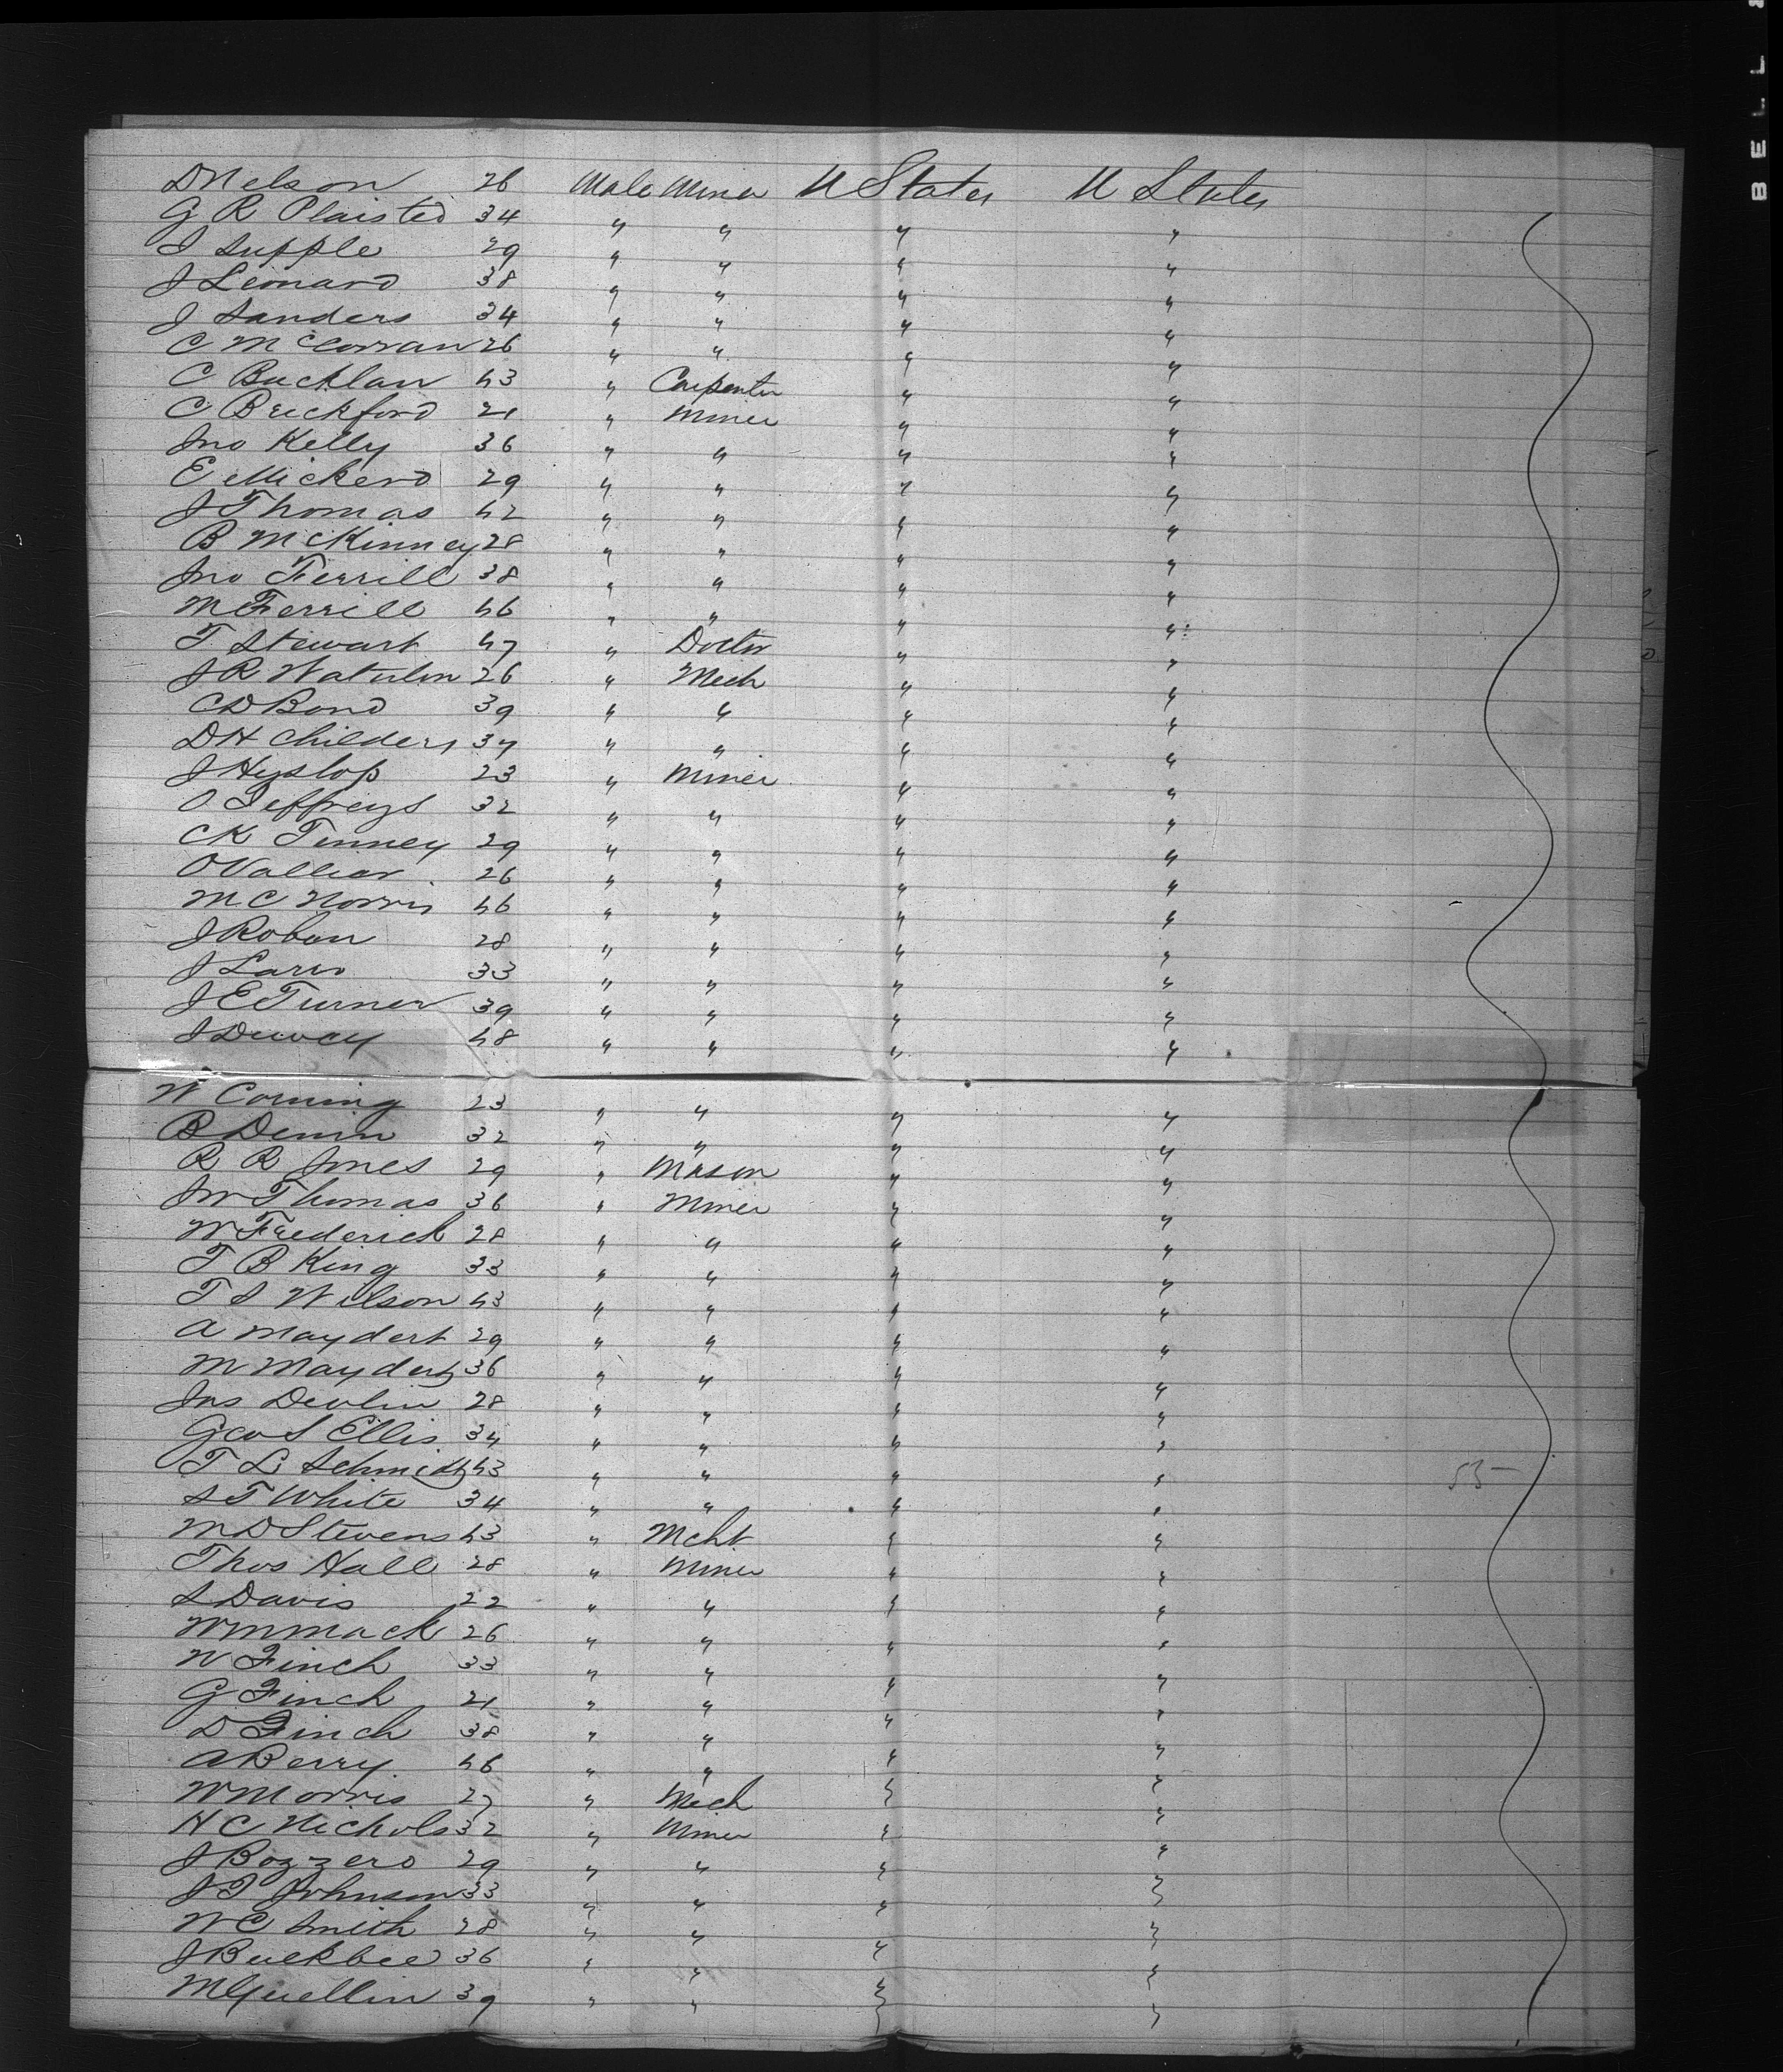 D Nelson 26 Male Miner U States U States
G R Plaisted 34 " " " "
J Supple 29 " " " "
J Leonard 38 " " " "
J Sanders 34 " " " "
C McCorran 26 " " " "
C Bucklan 43 " Carpenter " "
C Brickford 21 " Miner " "
Jno Kelly 36 " " " "
E Mickerd 29 " " " "
J Thomas 42 " " " "
B McKinney 28 " " " "
Jno Ferrill 38 " " " "
M Ferrill 46 " " " "
T Stewart 47 " Doctor " "
J R 26 " Mech " "
C D Bond 39 " " " "
D H Childers 34 " " " "
J Hyslop 23 " Miner " "
O Jeffreys 32 " " " "
C K Tenney 29 " " " "
O Vallier 26 " " " "
M C Norris 46 " " " "
J Roban 28 " " " "
J 33 " " " "
J E Turner 39 " " " "
J Dewey 48 " " " "
W Corning 23 " " " "
B Denin 32 " " " "
R R Jones 29 " Mason " "
Jno Thomas 36 " Miner " "
W Frederick 28 " " " "
T B King 33 " " " "
T S Wilson 43 " " " "
A Maydert 29 " " " "
M Maydert 36 " " " "
Jas Devlin 28 " " " "
Geo S Ellis 34 " " " "
T L Schmidt 43 " " " " 53
S T White 34 " " " "
M D Stevens 43 " Mcht " "
Thos Hall 28 " Miner " "
S Davis 22 " " " "
Wm Mack 26 " " " "
W Finch 33 " " " "
G Finch 21 " " " "
D Finch 38 " " " "
A Berry 46 " " " "
W Morris 27 " Mech " "
H C Nichols 32 " Miner " "
J Bozzero 29 " " " "
J T Johnson 33 " " " "
W C Smith 28 " " " "
J Buckbee 36 " " " "
39 " " " "
BELL